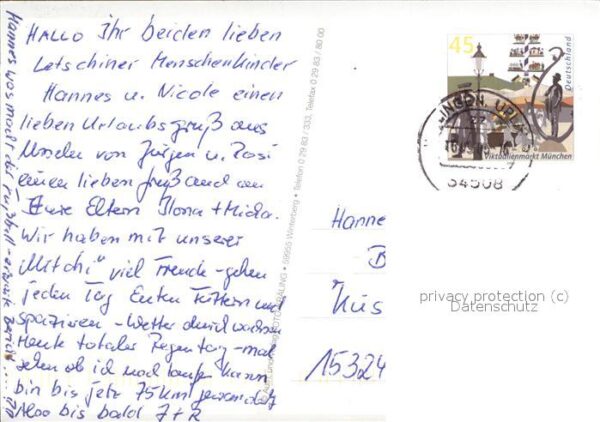 HALLO Ihr beiden lieben
Letschiner Menschenkinder
Hannes u. Nicole einen
lieben Urlaubsgruß aus
von Jürgen u. Rosi
einen lieben Gruß auch an
Eure Eltern Ilona +
Wir haben mit unserer
"Mitchi" viel Freude - gehen
jeden Tag Enten füttern und
spazieren - Wetter durchwachsen
Heute totaler Regentag - mal
sehen ob ich noch laufen kann
bin bis jetz 75km gewandert
Also bis bald J+R
Hannes was macht der Fußball - erwarte Bericht....
59955 Winterberg • Telefon 0 29 83 / 333, Telefax 0 29 83 / 80 00
45
Deutschland
Viktualienmarkt München
34508
Hanne
B
Küs
15324
privacy protection (c)
Datenschutz